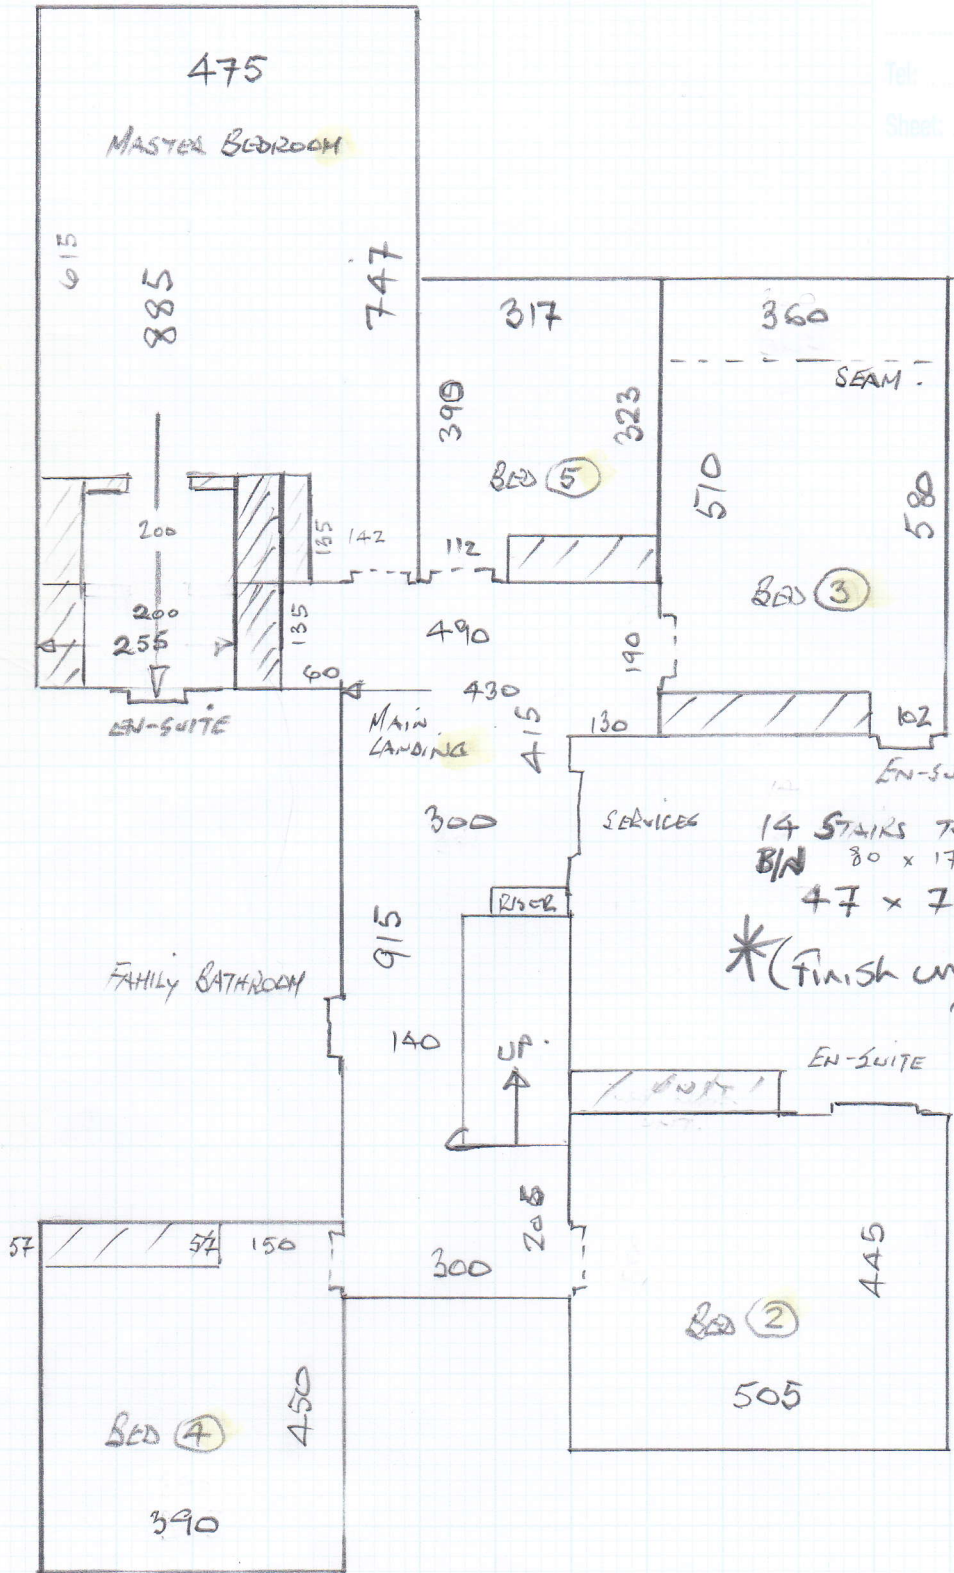 Tel:
Sheet:
475
MASTER BEDROOM
615
885
747
317
360
SEAM.
390
323
510
580
BED 5
BED 3
200
135
142
112
200
255
135
60
490
190
430
EN-SUITE
MAIN
LANDING
415
130
102
EN-SU
300
SERVICES
14 STAIRS T
B/N 80 x 17
47 x 7
RISER
915
*(Finish un
FAMILY BATHROOM
140
UP.
EN-SUITE
205
57
57
150
300
445
BED 2
505
450
BED 4
390